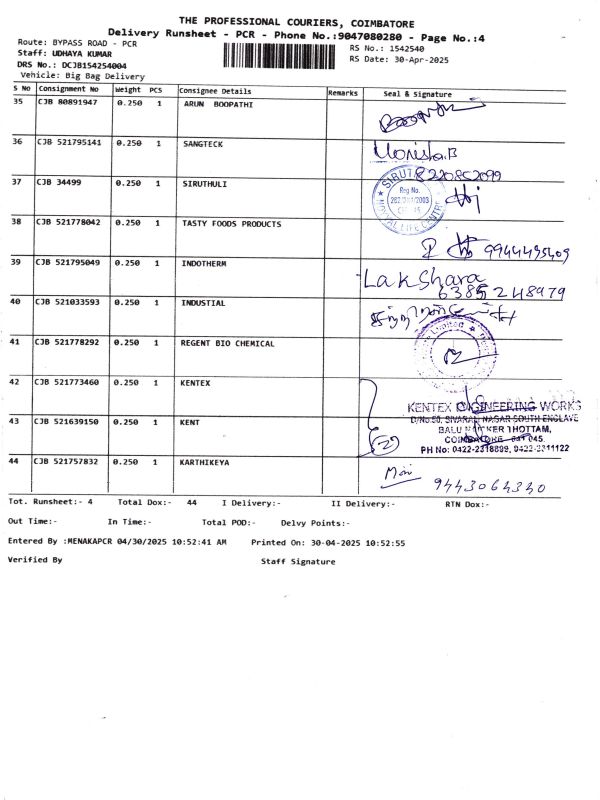 THE PROFESSIONAL COURIERS, COIMBATORE
Delivery Runsheet - PCR - Phone No.:9047080280 - Page No.:4
Route: BYPASS ROAD - PCR
RS No.: 1542540
Staff: UDHAYA KUMAR
RS Date: 30-Apr-2025
DRS No.: DCJB154254004
Vehicle: Big Bag Delivery
S No Consignment No Weight PCS Consignee Details Remarks Seal & Signature
35 CJB 80891947 0.250 1 ARUN BOOPATHI
36 CJB 521795141 0.250 1 SANGTECK
8220852099
37 CJB 34499 0.250 1 SIRUTHULI
Reg No.
38 CJB 521778042 0.250 1 TASTY FOODS PRODUCTS
9944495409
39 CJB 521795049 0.250 1 INDOTHERM
Lakshara
6385248979
40 CJB 521033593 0.250 1 INDUSTIAL
41 CJB 521778292 0.250 1 REGENT BIO CHEMICAL
42 CJB 521773460 0.250 1 KENTEX
KENTEX ENGINEERING WORKS
43 CJB 521639150 0.250 1 KENT
(2)
COIMBATORE - 641 045.
44 CJB 521757832 0.250 1 KARTHIKEYA
9443064340
Tot. Runsheet:- 4 Total Dox:- 44 I Delivery:- II Delivery:- RTN Dox:-
Out Time:- In Time:- Total POD:- Delvy Points:-
Entered By :MENAKAPCR 04/30/2025 10:52:41 AM Printed On: 30-04-2025 10:52:55
Verified By Staff Signature